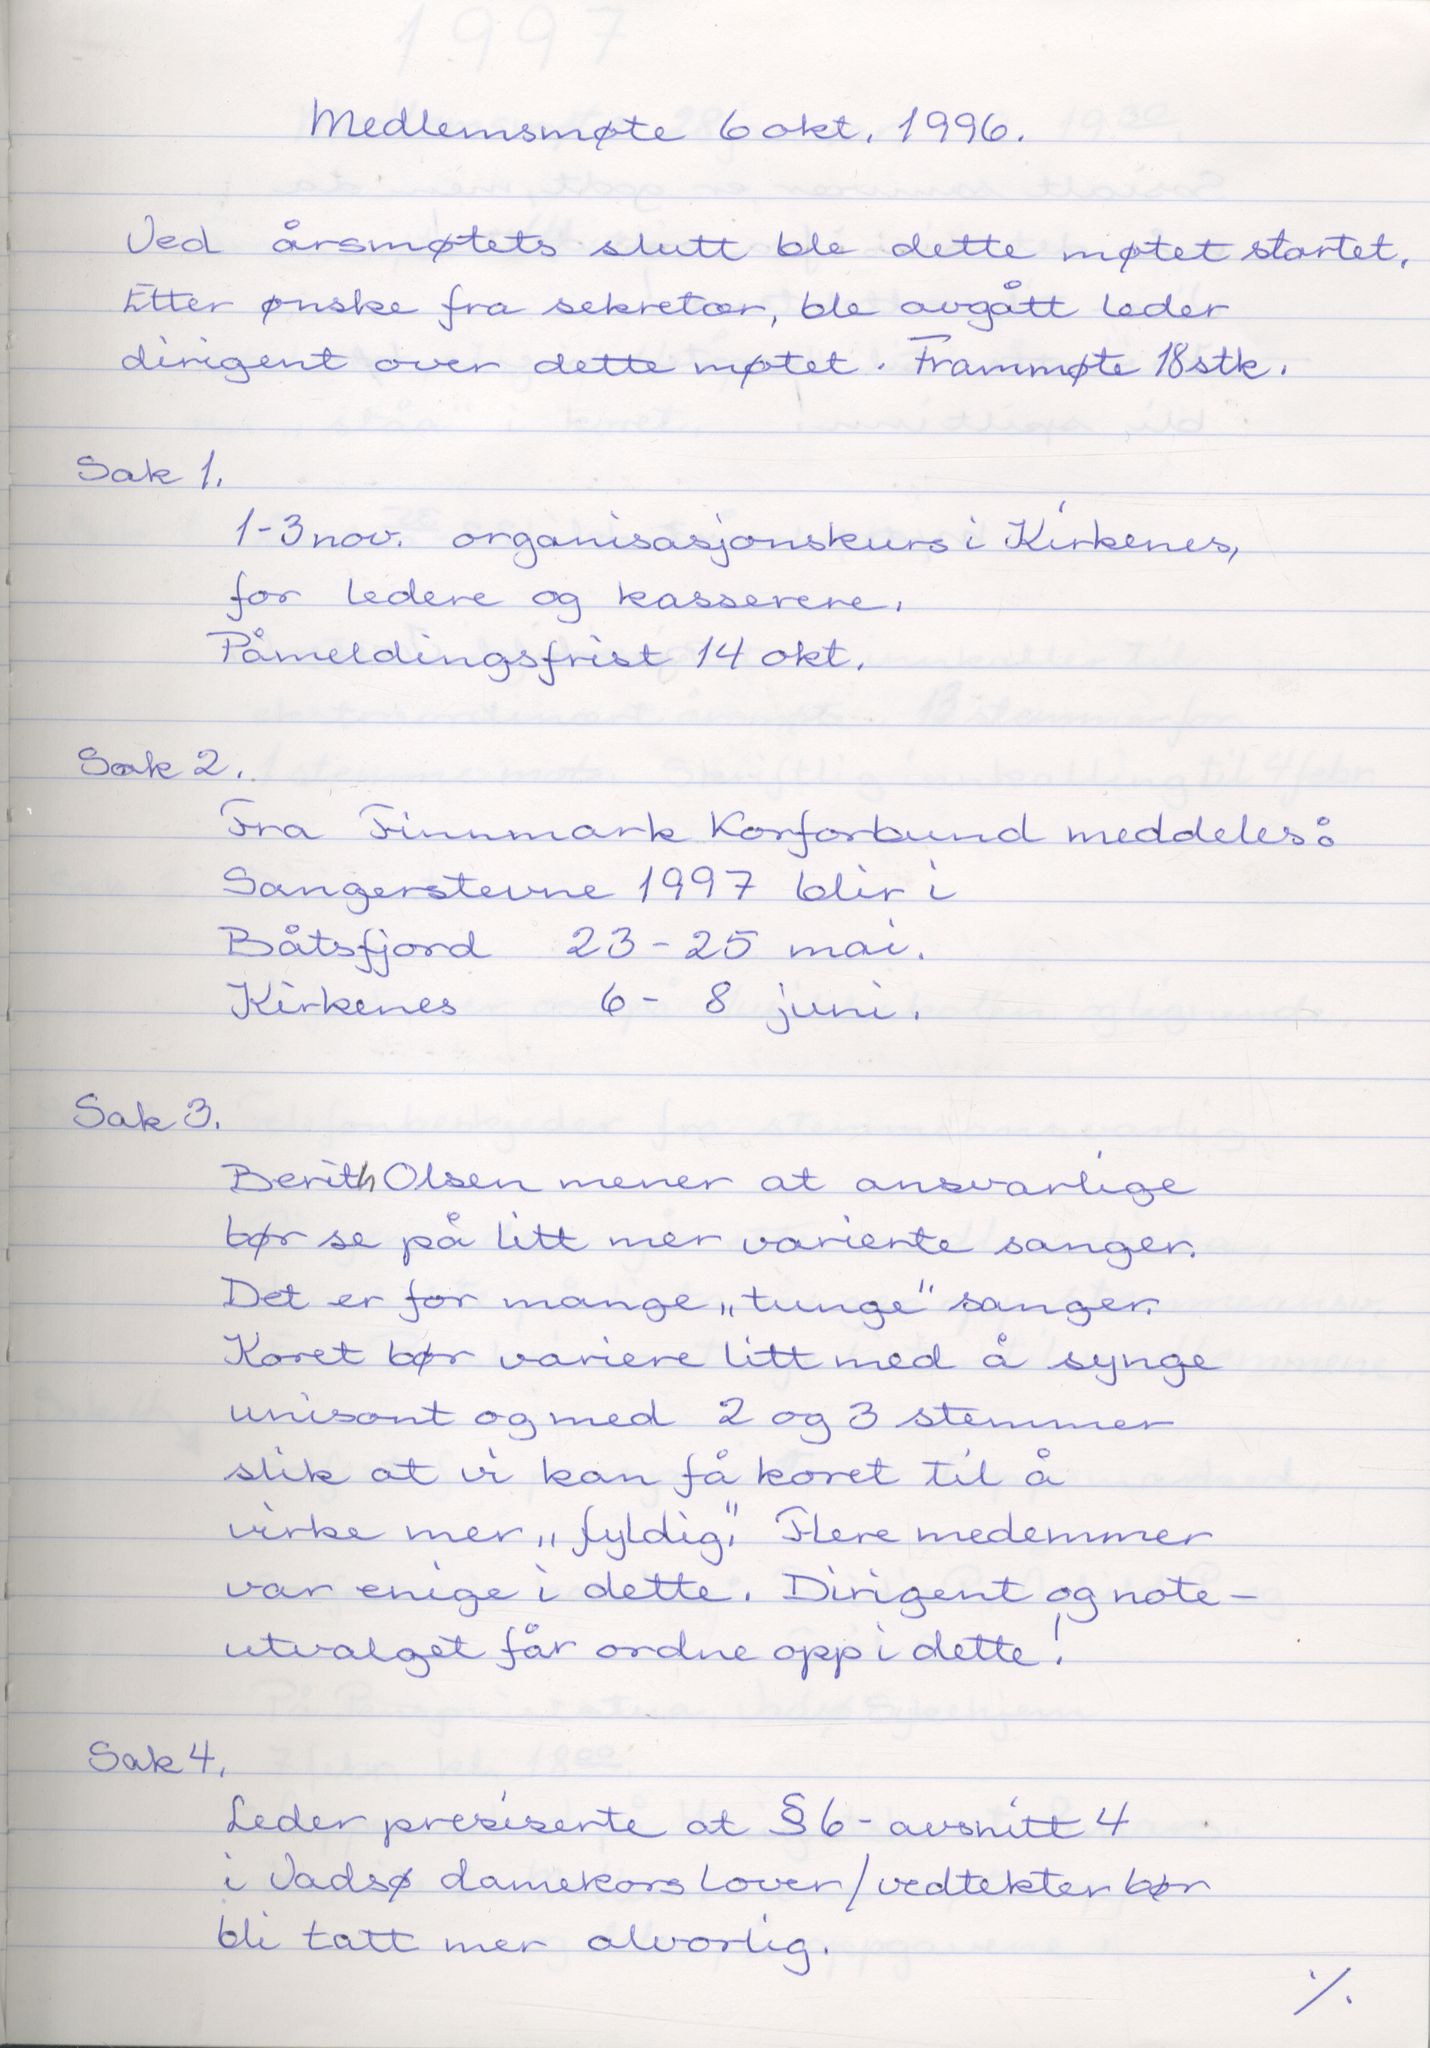 Medlemsmøte 6 okt. 1996.
Ved årsmøtets slutt ble dette møtet startet.
Etter ønske fra sekretær, ble avgått leder
dirigent over dette møtet. Frammøte 18 stk.
Sak 1.
1-3 nov. organisasjonskurs i Kirkenes,
for ledere og kasserere.
Påmeldingsfrist 14 okt.
Sak 2.
Fra Finnmark Korforbund meddeles:
Sangerstevne 1997 blir i
Båtsfjord 23-25 mai.
Kirkenes 6-8 juni.
Sak 3.
Berith Olsen mener at ansvarlige
bør se på litt mer varierte sanger.
Det er for mange „tunge" sanger.
Koret bør variere litt med å synge
unisont og med 2 og 3 stemmer
slik at vi kan få koret til å
virke mer „fyldig". Flere medemmer
var enige i dette. Dirigent og note-
utvalget får ordne opp i dette!
Sak 4.
Leder presiserte at § 6 - avsnitt 4
i Vadsø damekors lover/vedtekter bør
bli tatt mer alvorlig.
·/.